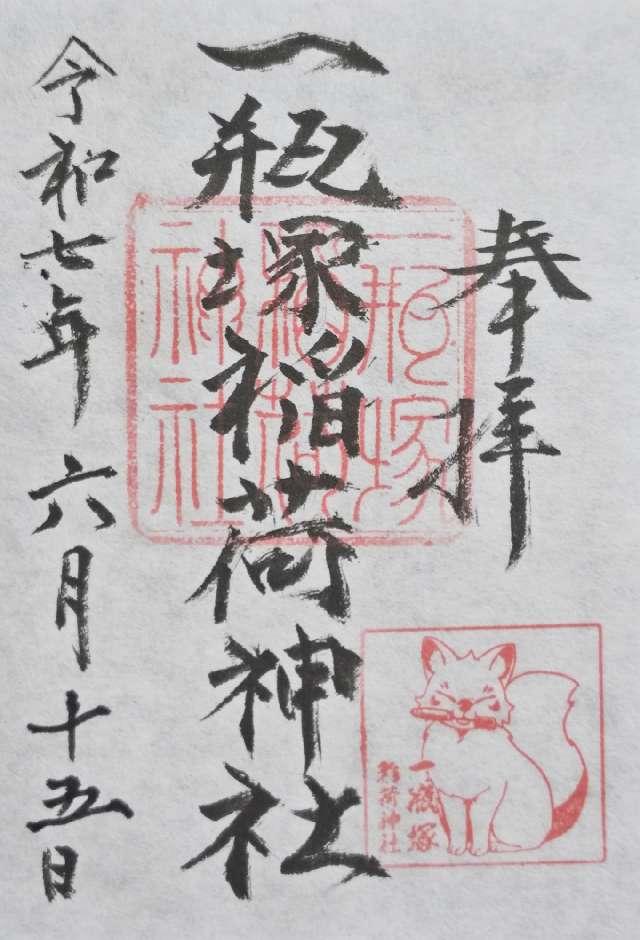 奉拝
一瓶塚稲荷神社
令和七年 六月十五日
一瓶塚稲荷神社
一瓶塚
稲荷神社